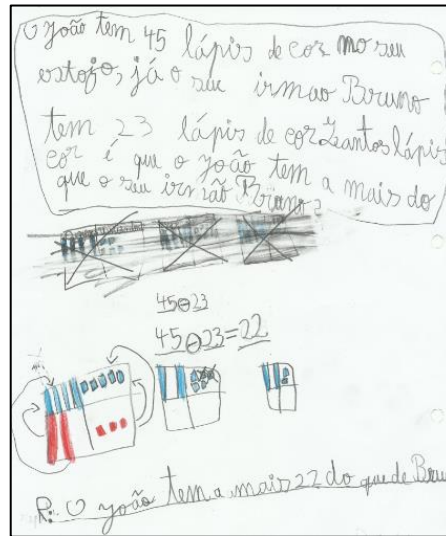 O João tem 45 lápis de cor no seu
estojo, já o seu irmao Bruno
tem 23 lápis de cor. Tantos lápis
cor é que o João tem a mais do
que o seu irmão Bruno
45⊖23
45⊖23=22
R: O João tem a mais 22 do que de Bru